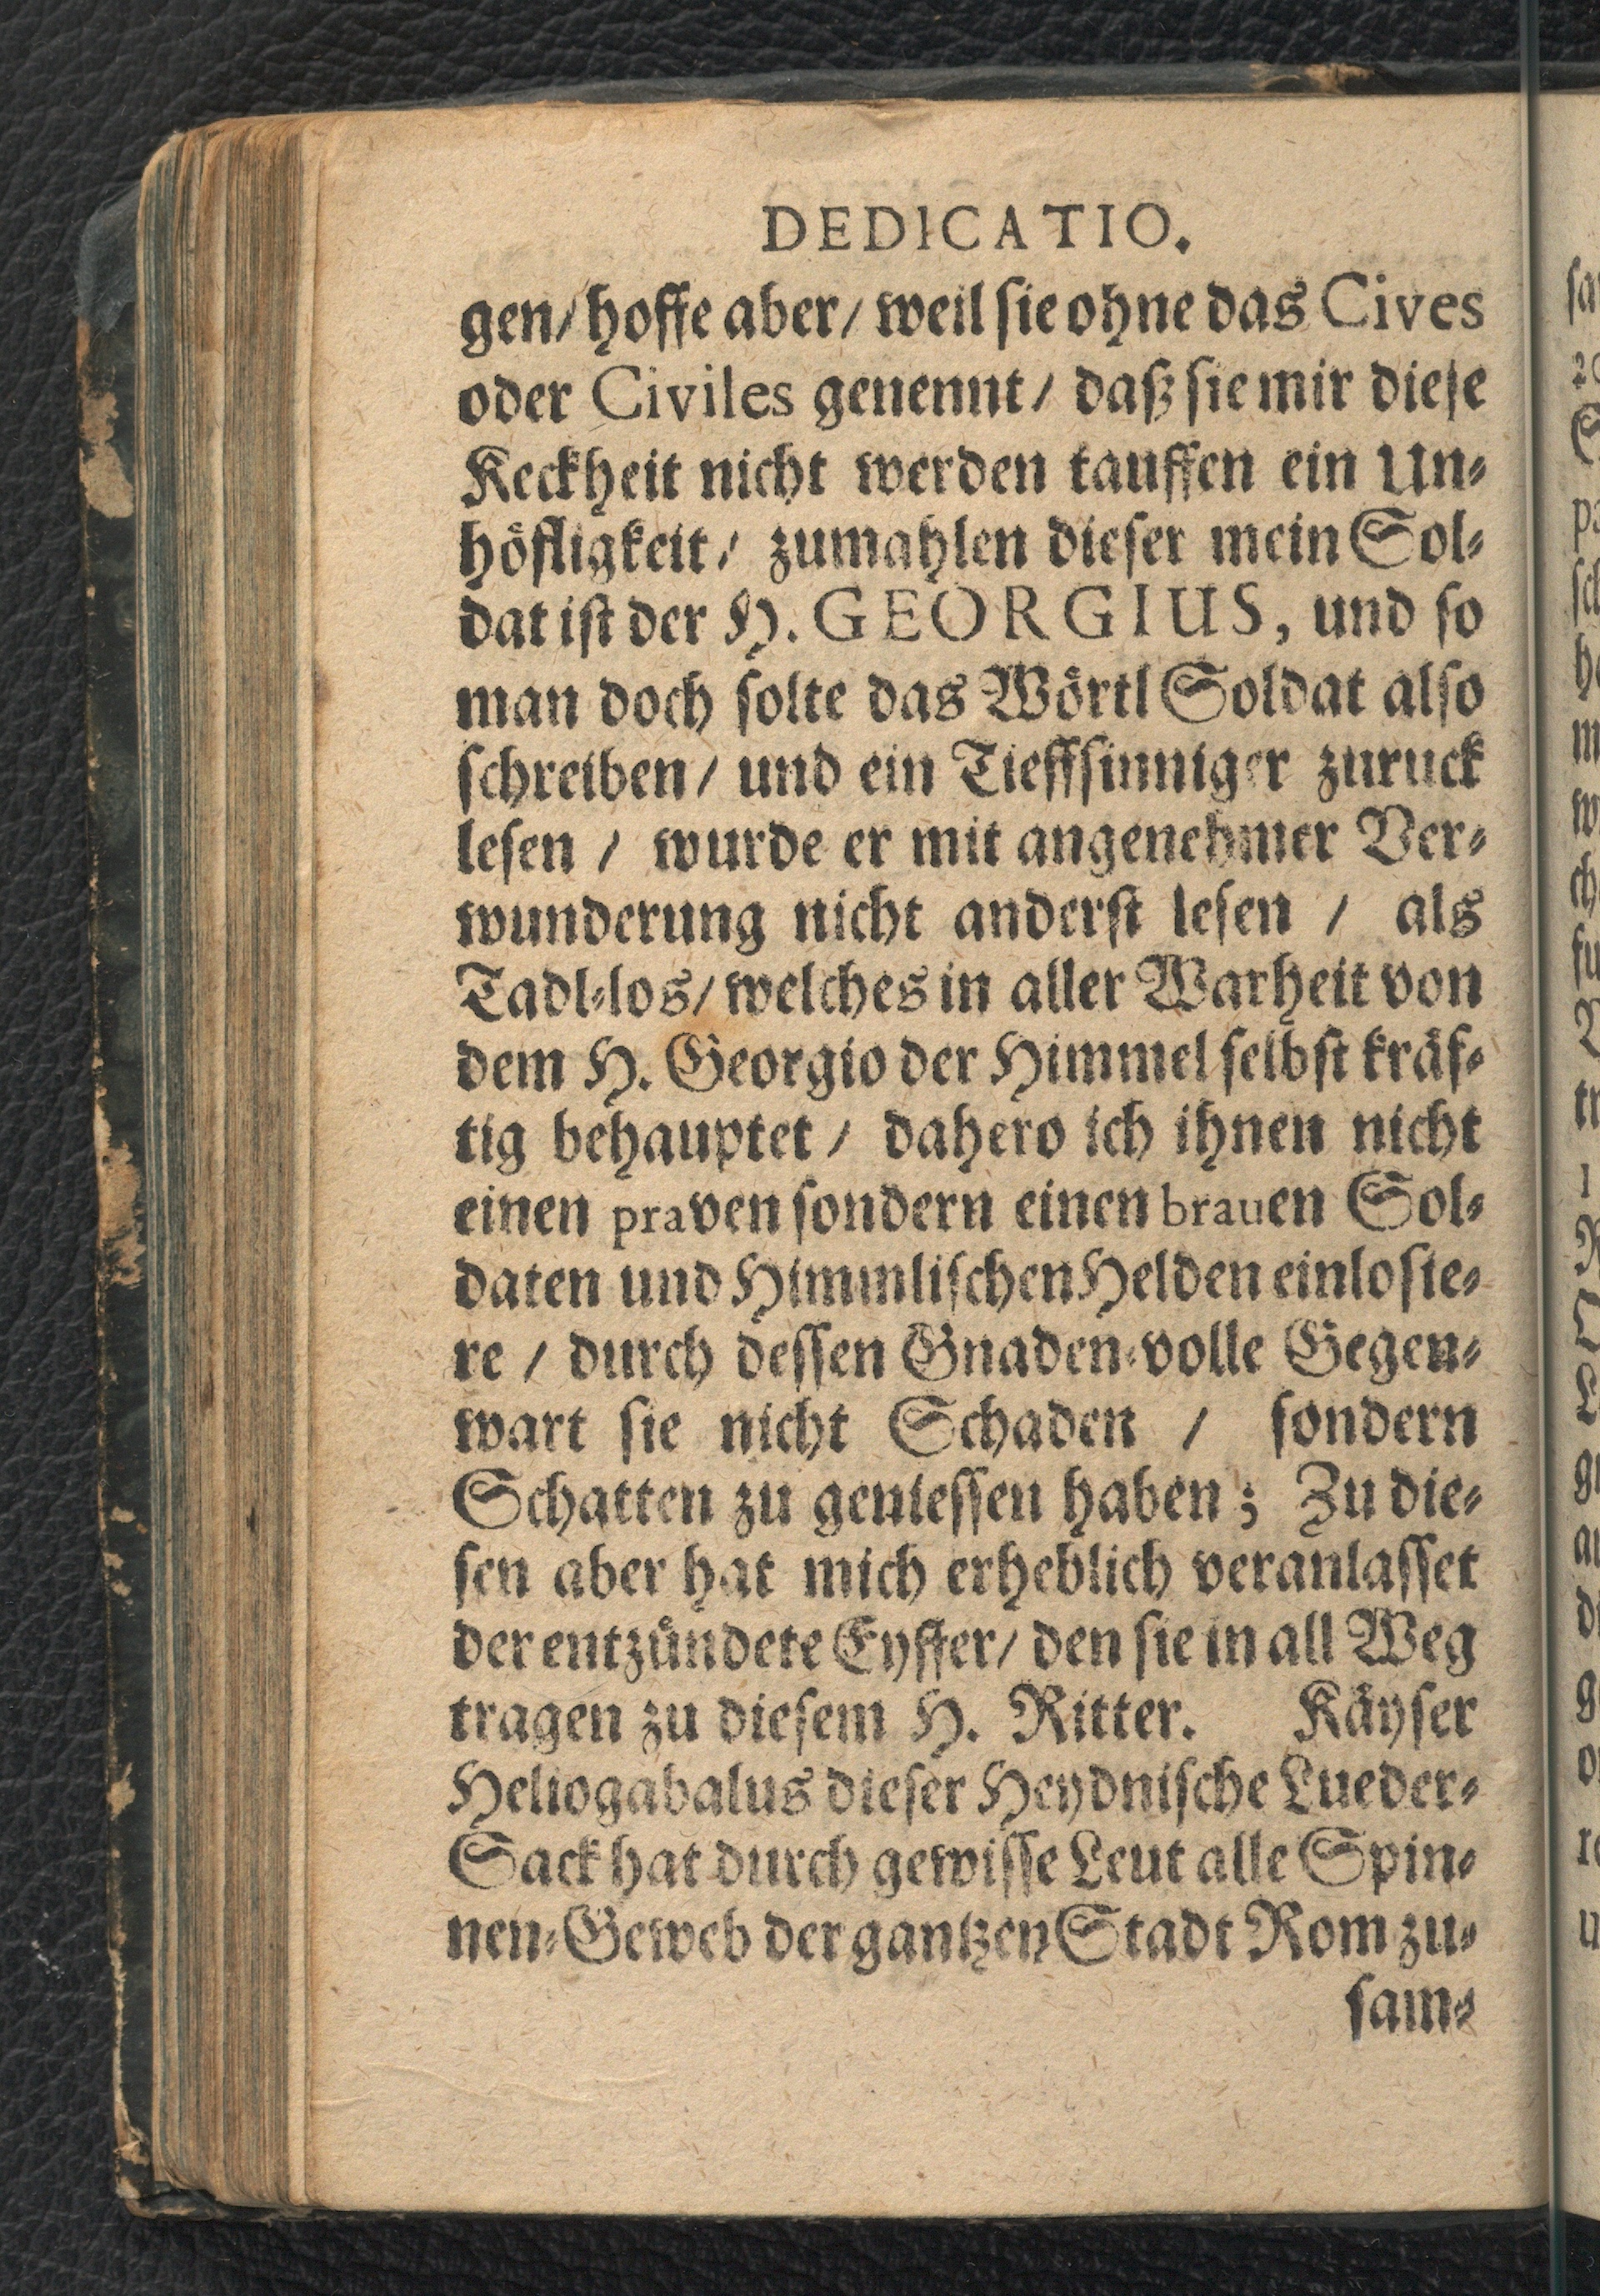 DEDICATIO.
gen/ hoffe aber/ weil sie ohne das Cives
oder Civiles genennt/ daß sie mir diese
Keckheit nicht werden tauffen ein Un-
höfligkeit/ zumahlen dieser mein Sol-
dat ist der H. GEORGIUS, und so
man doch solte das Wörtl Soldat also
schreiben/ und ein Tieffsinniger zuruck
lesen / wurde er mit angenehmer Ver-
wunderung nicht anderst lesen / als
Tadl-los/ welches in aller Warheit von
dem H. Georgio der Himmel selbst kräf-
tig behauptet/ dahero ich ihnen nicht
einen praven sondern einen brauen Sol-
daten und Himmlischen Helden einlosie-
re / durch dessen Gnaden-volle Gegen-
wart sie nicht Schaden / sondern
Schatten zu geniessen haben; Zu die-
sen aber hat mich erheblich veranlasset
der entzündete Eyffer/ den sie in all Weg
tragen zu diesem H. Ritter. Käyser
Heliogabalus dieser Heydnische Lueder-
Sack hat durch gewisse Leut alle Spin-
nen-Geweb der gantzen Stadt Rom zu-
sam-